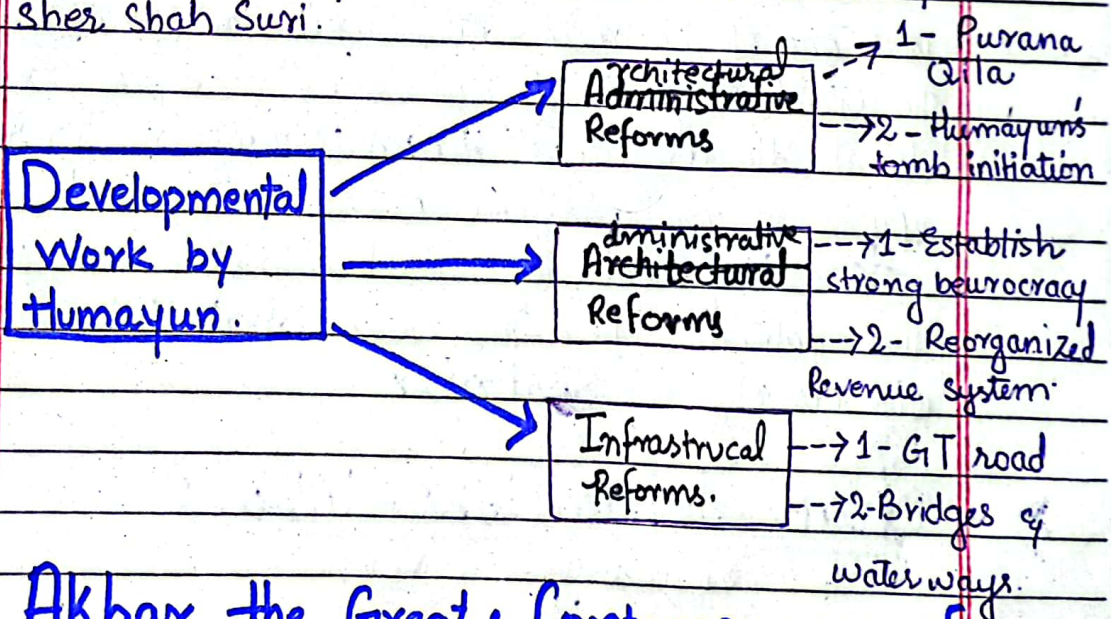 Sher Shah Suri.
Developmental
Work by
Humayun.
Architectural
Administrative
Reforms
1- Purana
Qila
2- Humayun's
tomb initiation
Administrative
Architectural
Reforms
1- Establish
strong beurocracy
2- Reorganized
Revenue system.
Infrastrucal
Reforms.
1- GT road
2-Bridges &
water ways.
Akbar the Great